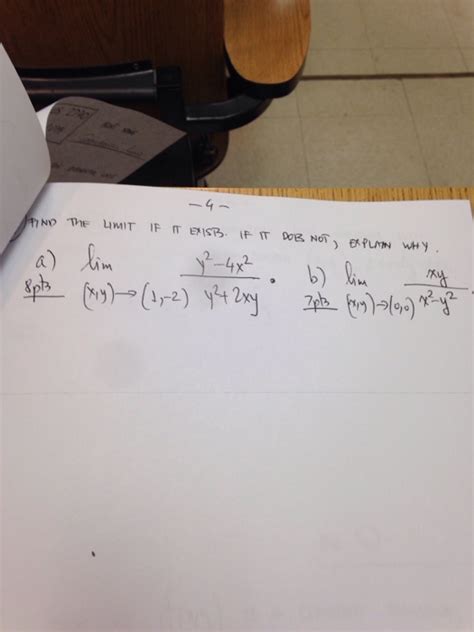 -4-
FIND THE LIMIT IF IT EXISTS. IF IT DOES NOT, EXPLAIN WHY.
a) lim (x,y)→(1,-2) (y²-4x²)/(y²+2xy). b) lim (x,y)→(0,0) (xy)/(x²-y²).
8pts 7pts